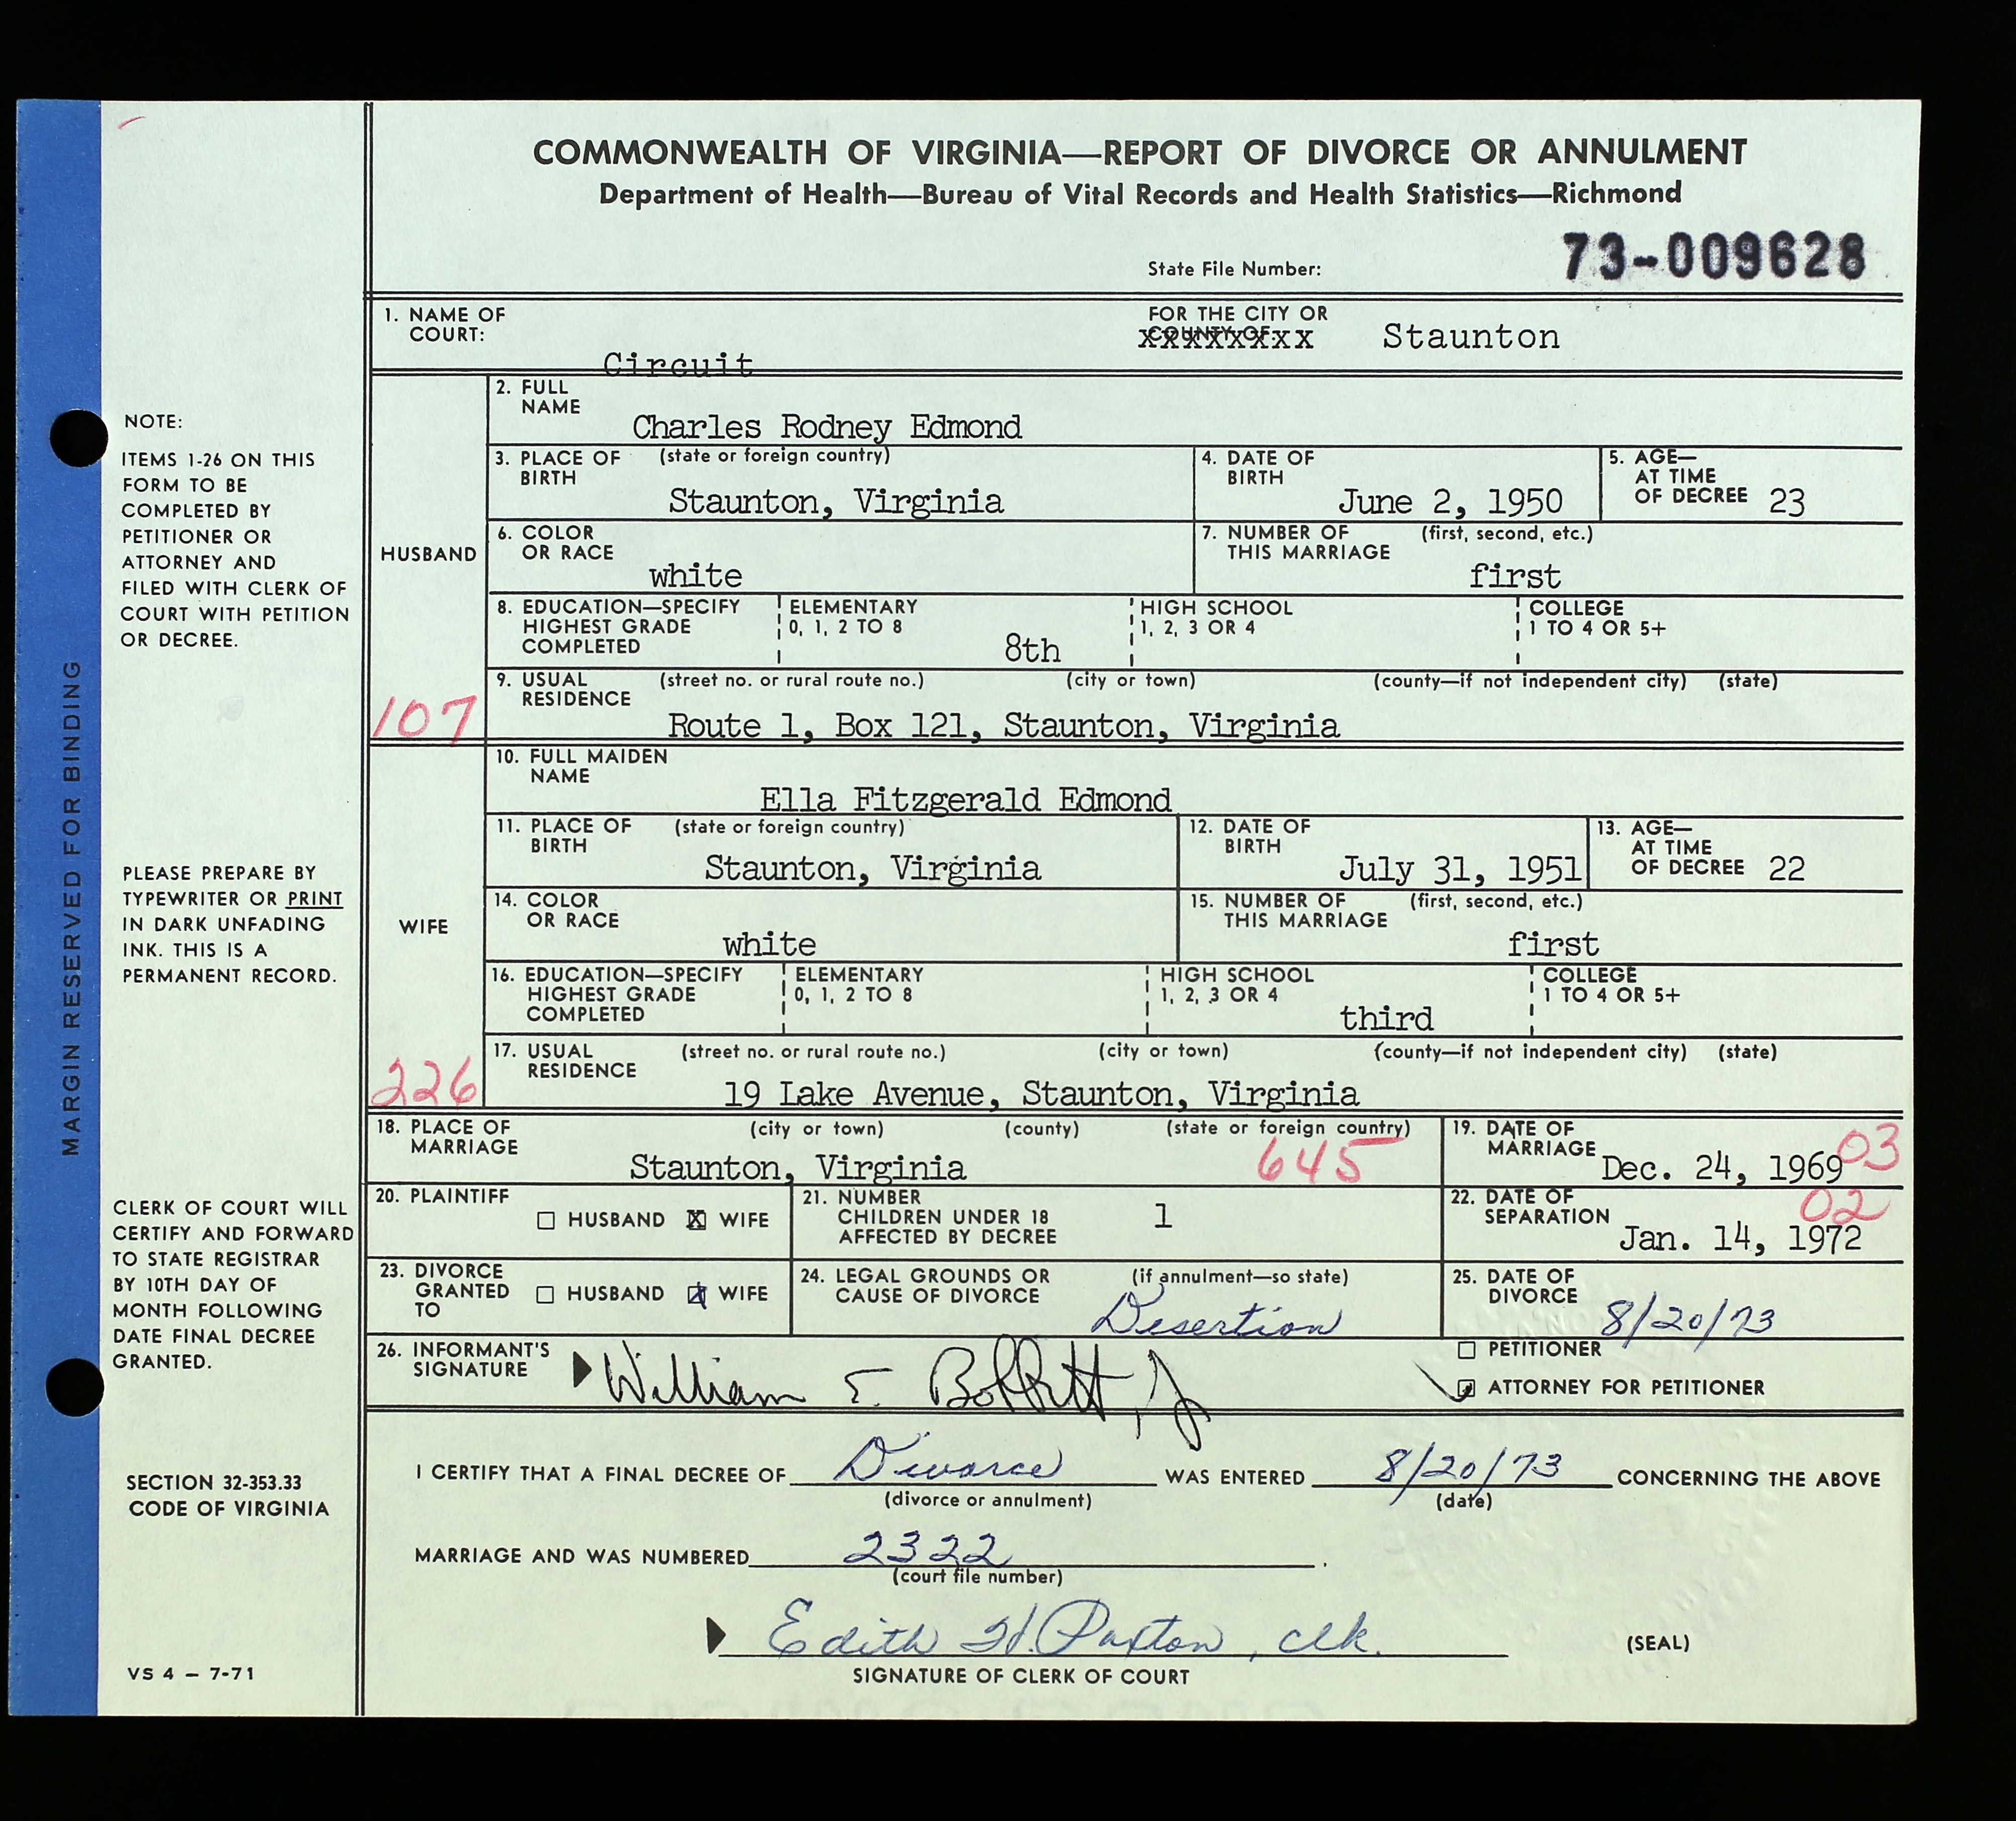 COMMONWEALTH OF VIRGINIA—REPORT OF DIVORCE OR ANNULMENT
Department of Health—Bureau of Vital Records and Health Statistics—Richmond
State File Number: 73-009628
1. NAME OF COURT: Circuit
FOR THE CITY OR COUNTY OF: xxxxxxxxx Staunton
HUSBAND
2. FULL NAME Charles Rodney Edmond
3. PLACE OF BIRTH (state or foreign country) Staunton, Virginia
4. DATE OF BIRTH June 2, 1950
5. AGE—AT TIME OF DECREE 23
6. COLOR OR RACE white
7. NUMBER OF THIS MARRIAGE (first, second, etc.) first
8. EDUCATION—SPECIFY HIGHEST GRADE COMPLETED
ELEMENTARY 0, 1, 2 TO 8 8th
HIGH SCHOOL 1, 2, 3 OR 4
COLLEGE 1 TO 4 OR 5+
9. USUAL RESIDENCE (street no. or rural route no.) (city or town) (county—if not independent city) (state)
107
Route 1, Box 121, Staunton, Virginia
WIFE
10. FULL MAIDEN NAME Ella Fitzgerald Edmond
11. PLACE OF BIRTH (state or foreign country) Staunton, Virginia
12. DATE OF BIRTH July 31, 1951
13. AGE—AT TIME OF DECREE 22
14. COLOR OR RACE white
15. NUMBER OF THIS MARRIAGE (first, second, etc.) first
16. EDUCATION—SPECIFY HIGHEST GRADE COMPLETED
ELEMENTARY 0, 1, 2 TO 8
HIGH SCHOOL 1, 2, 3 OR 4 third
COLLEGE 1 TO 4 OR 5+
17. USUAL RESIDENCE (street no. or rural route no.) (city or town) (county—if not independent city) (state)
226
19 Lake Avenue, Staunton, Virginia
18. PLACE OF MARRIAGE (city or town) (county) (state or foreign country) Staunton, Virginia 645
19. DATE OF MARRIAGE Dec. 24, 1969 03
20. PLAINTIFF HUSBAND X WIFE
21. NUMBER CHILDREN UNDER 18 AFFECTED BY DECREE 1
22. DATE OF SEPARATION 02 Jan. 14, 1972
23. DIVORCE GRANTED TO HUSBAND X WIFE
24. LEGAL GROUNDS OR CAUSE OF DIVORCE (if annulment—so state) Desertion
25. DATE OF DIVORCE 8/20/73
26. INFORMANT'S SIGNATURE William E. Boffett, Jr
PETITIONER
ATTORNEY FOR PETITIONER
I CERTIFY THAT A FINAL DECREE OF Divorce WAS ENTERED 8/20/73 CONCERNING THE ABOVE
(divorce or annulment) (date)
MARRIAGE AND WAS NUMBERED 2322.
(court file number)
Edith H. Paxton, Clk. (SEAL)
SIGNATURE OF CLERK OF COURT
MARGIN RESERVED FOR BINDING
NOTE:
ITEMS 1-26 ON THIS
FORM TO BE
COMPLETED BY
PETITIONER OR
ATTORNEY AND
FILED WITH CLERK OF
COURT WITH PETITION
OR DECREE.
PLEASE PREPARE BY
TYPEWRITER OR PRINT
IN DARK UNFADING
INK. THIS IS A
PERMANENT RECORD.
CLERK OF COURT WILL
CERTIFY AND FORWARD
TO STATE REGISTRAR
BY 10TH DAY OF
MONTH FOLLOWING
DATE FINAL DECREE
GRANTED.
SECTION 32-353.33
CODE OF VIRGINIA
VS 4 – 7-71